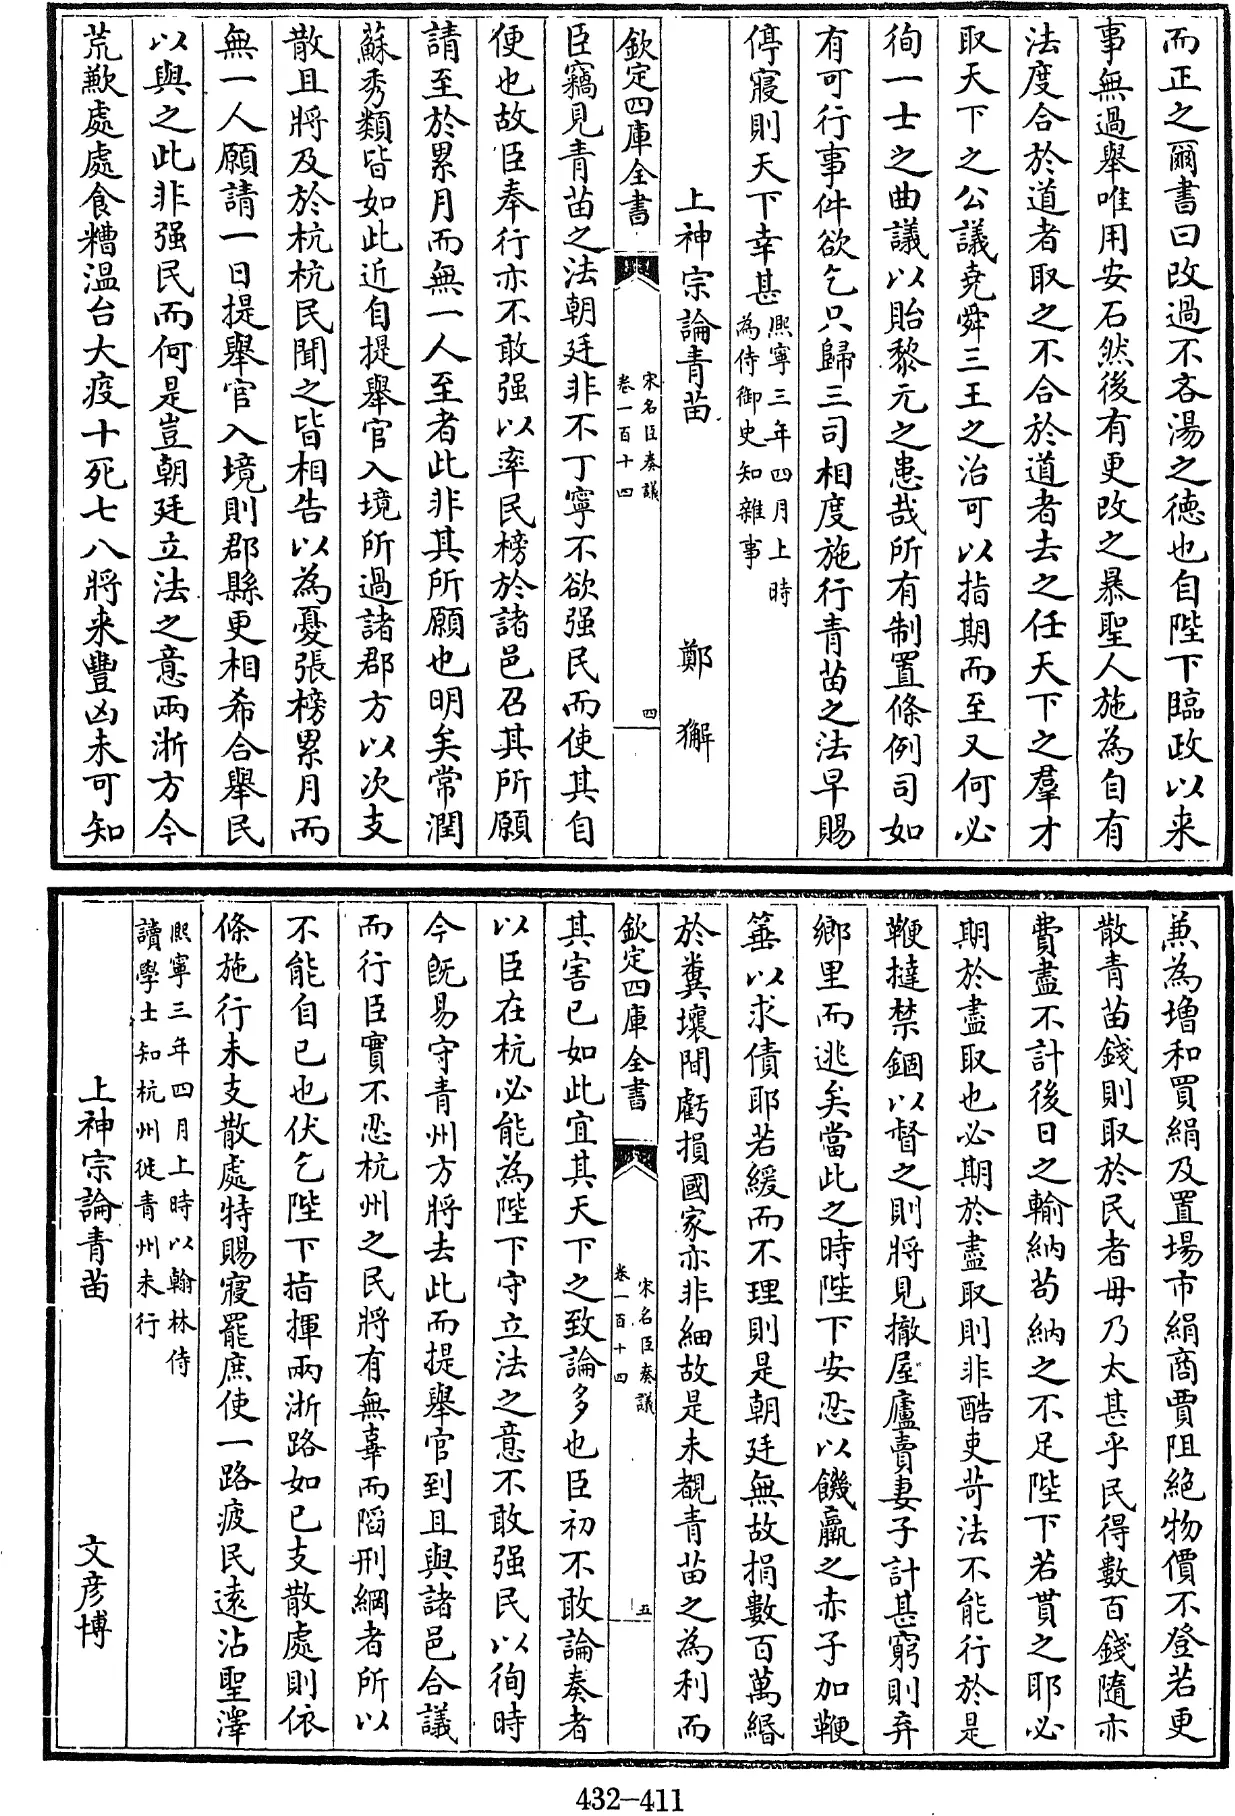 而正之爾書曰改過不吝湯之德也自陛下臨政以来
事無過舉唯用安石然後有更改之暴聖人施為自有
法度合於道者取之不合於道者去之任天下之羣才
取天下之公議堯舜三王之治可以指期而至又何必
徇一士之曲議以貽黎元之患哉所有制置條例司如
有可行事件欲乞只歸三司相度施行青苗之法早賜
停寢則天下幸甚熙寧三年四月上時
為侍御史知雜事
上神宗論青苗 鄭獬
欽定四庫全書 宋名臣奏議
卷一百十四 四
臣竊見青苗之法朝廷非不丁寧不欲强民而使其自
便也故臣奉行亦不敢强以率民榜於諸邑召其所願
請至於累月而無一人至者此非其所願也明矣常潤
蘇秀類皆如此近自提舉官入境所過諸郡方以次支
散且將及於杭杭民聞之皆相告以為憂張榜累月而
無一人願請一日提舉官入境則郡縣更相希合舉民
以與之此非强民而何是豈朝廷立法之意兩浙方今
荒歉處處食糟温台大疫十死七八將来豐凶未可知
兼為增和買絹及置場市絹商賈阻絶物價不登若更
散青苗錢則取於民者毋乃太甚乎民得數百錢隨亦
費盡不計後日之輸納茍納之不足陛下若貰之耶必
期於盡取也必期於盡取則非酷吏苛法不能行於是
鞭撻禁錮以督之則將見撤屋廬賣妻子計甚窮則弃
鄉里而逃矣當此之時陛下安忍以饑羸之赤子加鞭
箠以求債耶若緩而不理則是朝廷無故捐數百萬緡
於糞壤間虧損國家亦非細故是未覩青苗之為利而
欽定四庫全書 宋名臣奏議
卷一百十四 五
其害已如此宜其天下之致論多也臣初不敢論奏者
以臣在杭必能為陛下守立法之意不敢强民以徇時
今既易守青州方將去此而提舉官到且與諸邑合議
而行臣實不忍杭州之民將有無辜而陷刑綱者所以
不能自已也伏乞陛下指揮兩浙路如已支散處則依
條施行未支散處特賜寢罷庶使一路疲民逺沾聖澤
熙寧三年四月上時以翰林侍
讀學士知杭州徙青州未行
上神宗論青苗 文彦博
432-411